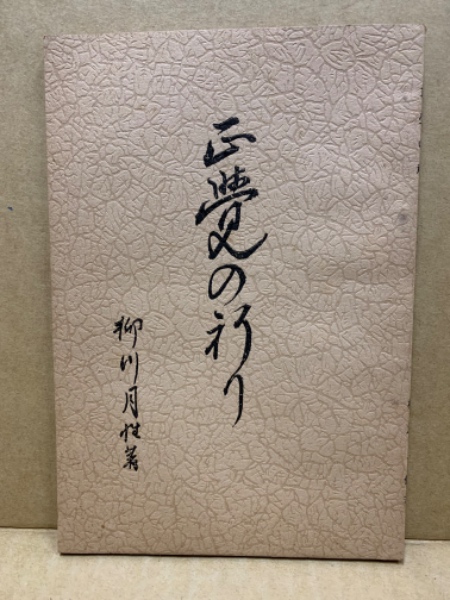 正覺の祈り
柳川月性著